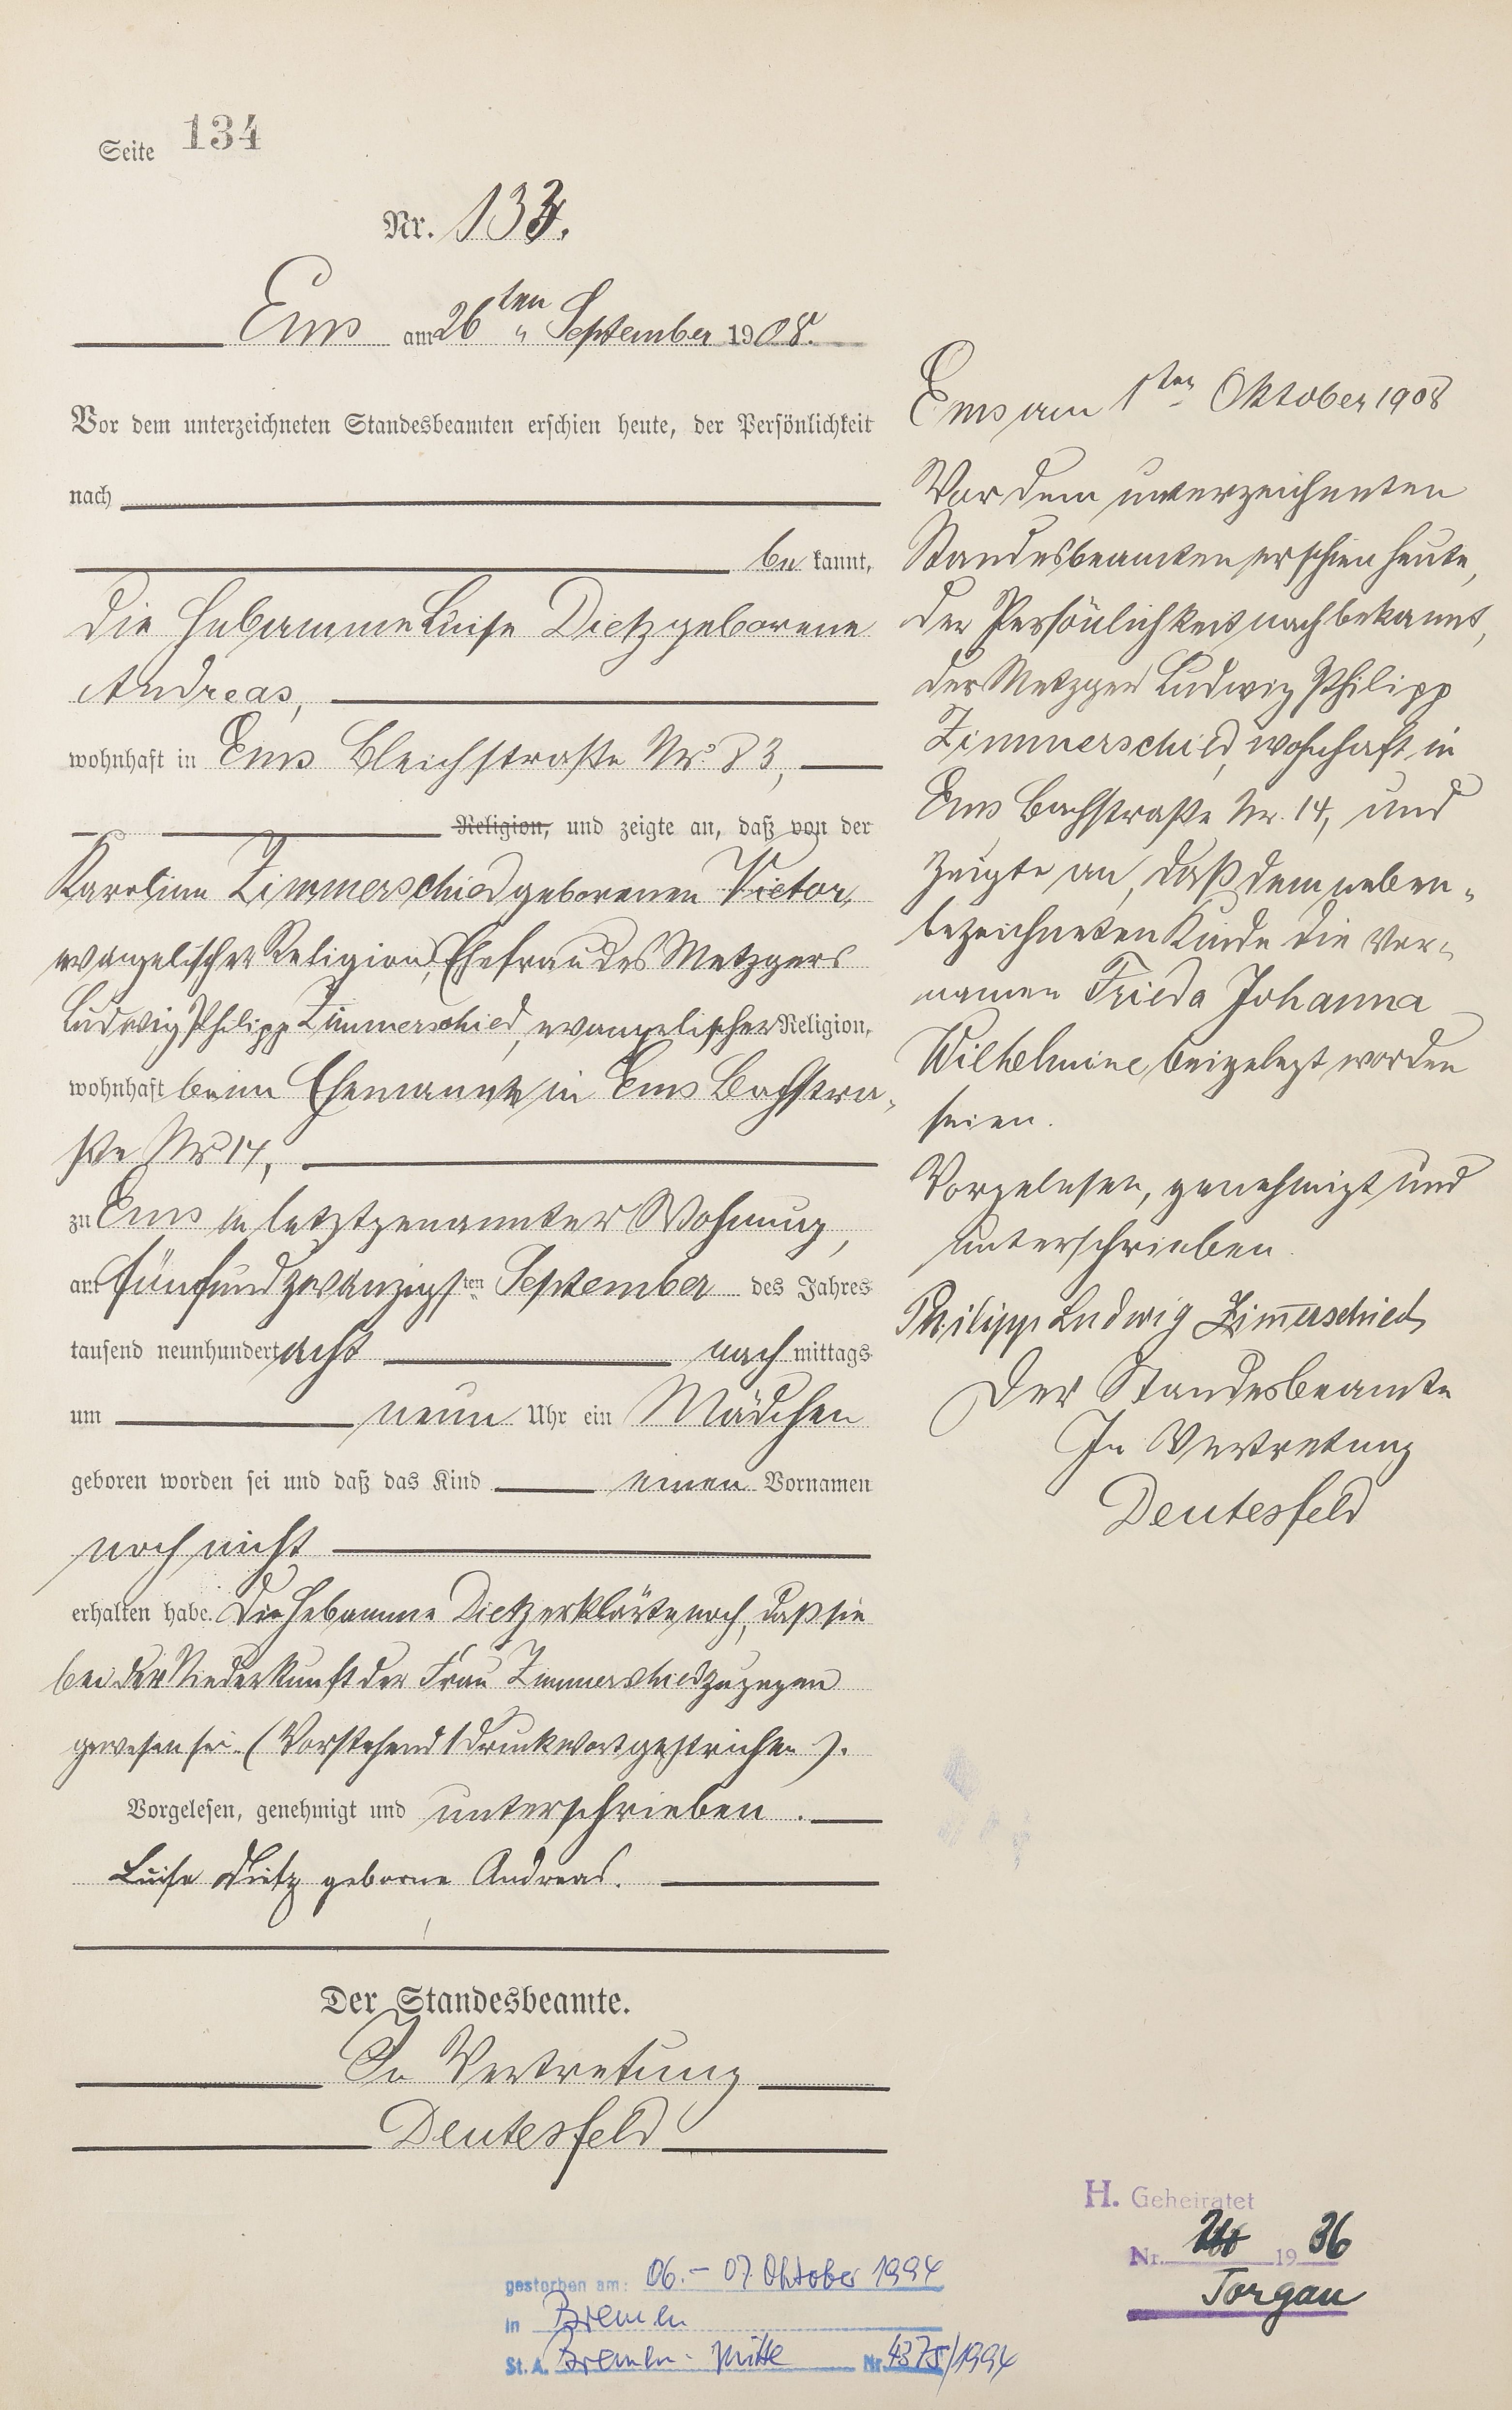 Seite 134
Nr. 134.
Ems am 26ten September 1908.
Vor dem unterzeichneten Standesbeamten erschien heute, der Persönlichkeit
nach
be kannt,
die Hebamme Luise Dietz geborene
Andreas,
wohnhaft in Ems Bleichstraße Nr. 83,
Religion, und zeigte an, daß von der
Karoline Zimmerschied geborenen Victor,
evangelischer Religion, Ehefrau des Metzgers
Ludwig Philipp Zimmerschied, evangelischer Religion,
wohnhaft beim Ehemanne in Ems Bachstra-
ße Nr 14,
zu Ems in letztgenannter Wohnung,
am fünfundzwanzigsten September des Jahres
tausend neunhundert acht nach mittags
um neun Uhr ein Mädchen
geboren worden sei und daß das Kind einen Vornamen
noch nicht
erhalten habe. Die Hebamme Dietz erklärte noch, daß sie
bei der Niederkunft der Frau Zimmerschied zugegen
gewesen sei. (Vorstehend 1 Druckwort gestrichen).
Vorgelesen, genehmigt und unterschrieben.
Luise Dietz geborne Andreas.
Der Standesbeamte.
In Vertretung
Deutesfeld
Ems am 1ten Oktober 1908
Vor dem unterzeichneten
Standesbeamten erschien heute,
der Persönlichkeit nach bekannt,
der Metzger Ludwig Philipp
Zimmerschied, wohnhaft in
Ems Bachstraße Nr. 14, und
zeigte an, daß dem neben-
bezeichneten Kinde die Vor-
namen Frieda Johanna
Wilhelmine beigelegt worden
seien.
Vorgelesen, genehmigt und
unterschrieben.
Philipp Ludwig Zimmerschied
Der Standesbeamte
In Vertretung
Deutesfeld
H. Geheiratet
Nr. 1936
Torgau
gestorben am: 06.- 07. Oktober 1994
in Bremen
St. A. Bremen-Mitte Nr. 4375/1994